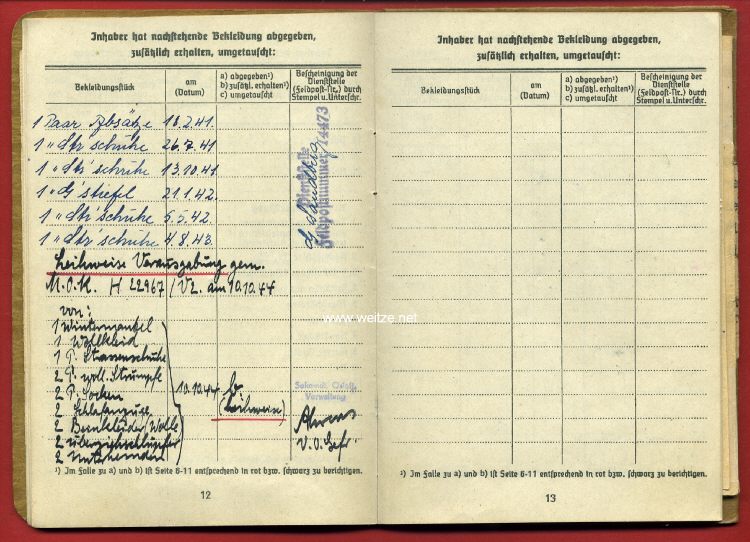 Inhaber hat nachstehende Bekleidung abgegeben,
zusätzlich erhalten, umgetauscht:
Bekleidungsstück
am
(Datum)
a) abgegeben¹)
b) zusätzl. erhalten¹)
c) umgetauscht
Bescheinigung der
Dienststelle
(Feldpost-Nr.) durch
Stempel u. Unterschr.
1 Paar Absätze 18.2.41.
1 " Str'schuhe 26.7.41
1 " Str'schuhe 13.10.41
1 " G'stiefel 21.1.42.
1 " Str'schuhe 5.5.42.
1 " Str'schuhe 4.8.43.
Dienststelle
Feldpostnummer 14473
Leihweise Verausgabung gem.
M.O.K. H 22967/Vz. am 10.10.44
von:
1 Wintermantel
1 Wollkleid
1 P. Strassenschuhe
2 P. woll. Strümpfe
2 P. Socken
2 Schlafanzüge
2 Beinkleider (Wolle)
2 Überziehschlüpfer
2 Unterhemden
10.10.44
b
(Leihweise)
Verwaltung
V.O.Gefr.
¹) Im Falle zu a) und b) ist Seite 6-11 entsprechend in rot bzw. schwarz zu berichtigen.
12
Inhaber hat nachstehende Bekleidung abgegeben,
zusätzlich erhalten, umgetauscht:
Bekleidungsstück
am
(Datum)
a) abgegeben¹)
b) zusätzl. erhalten¹)
c) umgetauscht
Bescheinigung der
Dienststelle
(Feldpost-Nr.) durch
Stempel u. Unterschr.
¹) Im Falle zu a) und b) ist Seite 6-11 entsprechend in rot bzw. schwarz zu berichtigen.
13
www.weitze.net